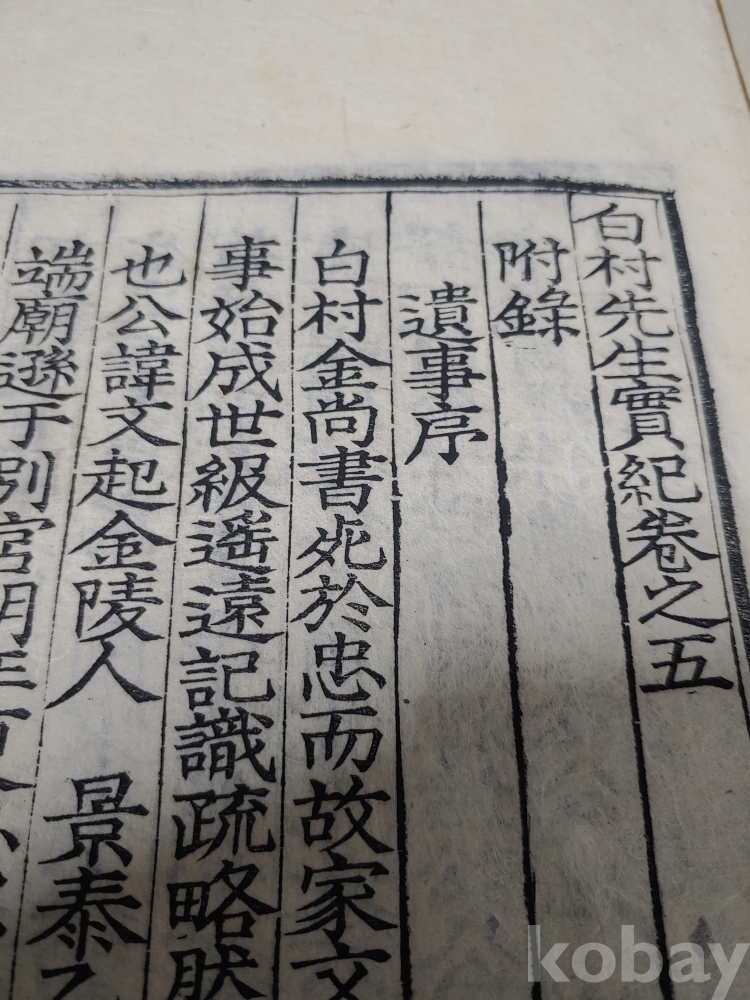 白村先生實紀卷之五
附錄
遺事序
白村金尚書死於忠而故家文
事始成世級遥遠記識疏略
也公諱文起金陵人 景泰
端廟遜于別宮明年
kobay